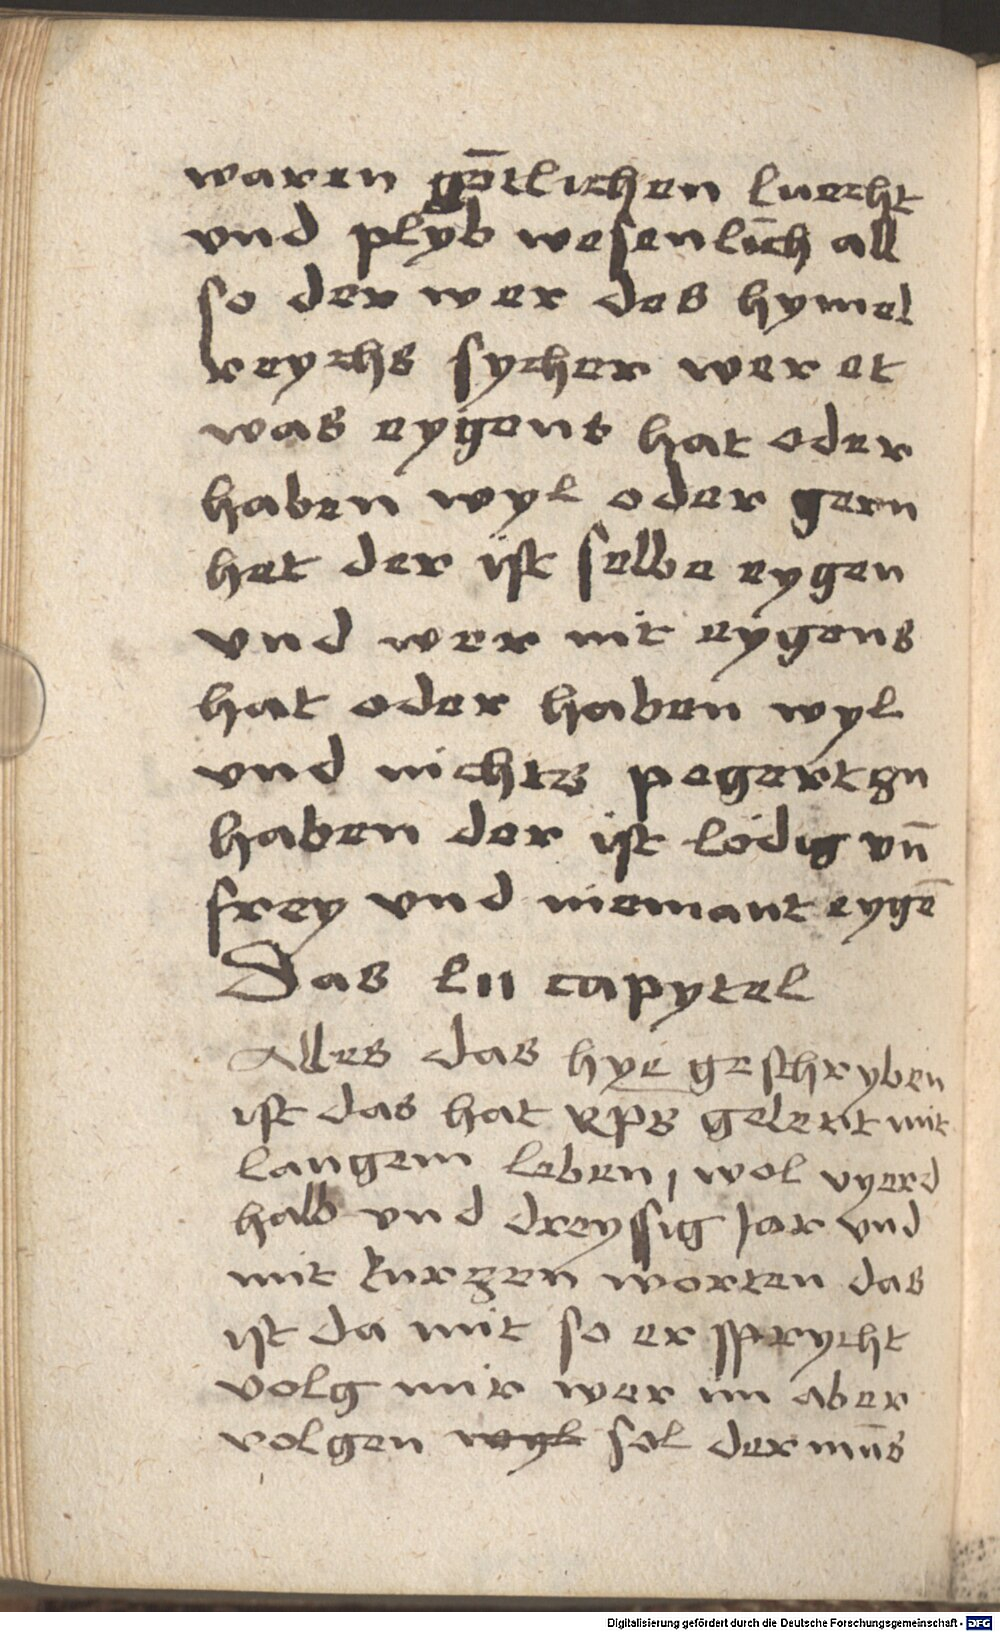 waren go̅tlichen luecht
vnd plyb wesenlic̅h all
so der wer des hymel
reychs sycher wer et
was eygens hat oder
haben wyl oder gern
het der ist selbe eygen
vnd wer nit eygens
hat oder haben wyl
vnd nichts pegert zu
haben der ist lödig vn̅
frey vnd niemant eyge̅
Das lii capytel
Alles das hye geschryben
ist das hat xps gelert mit
langem leben, wol vyerd
halb vnd dreyssig Jar vnd
mit kurzen worten das
ist da mit so er sprycht
volg mir wer im aber
volgen wyl sol der mus
Digitalisierung gefördert durch die Deutsche Forschungsgemeinschaft - DFG